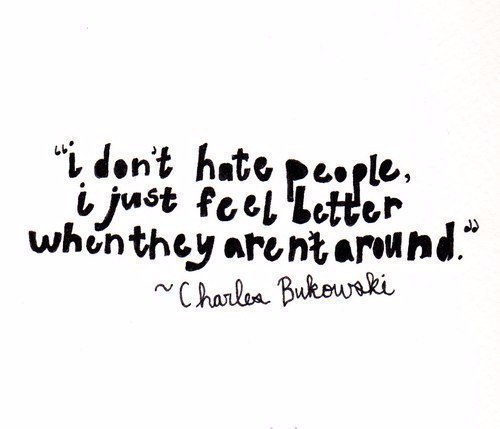 “i don't hate people,
i just feel better
when they aren't around.”
~ Charles Bukowski